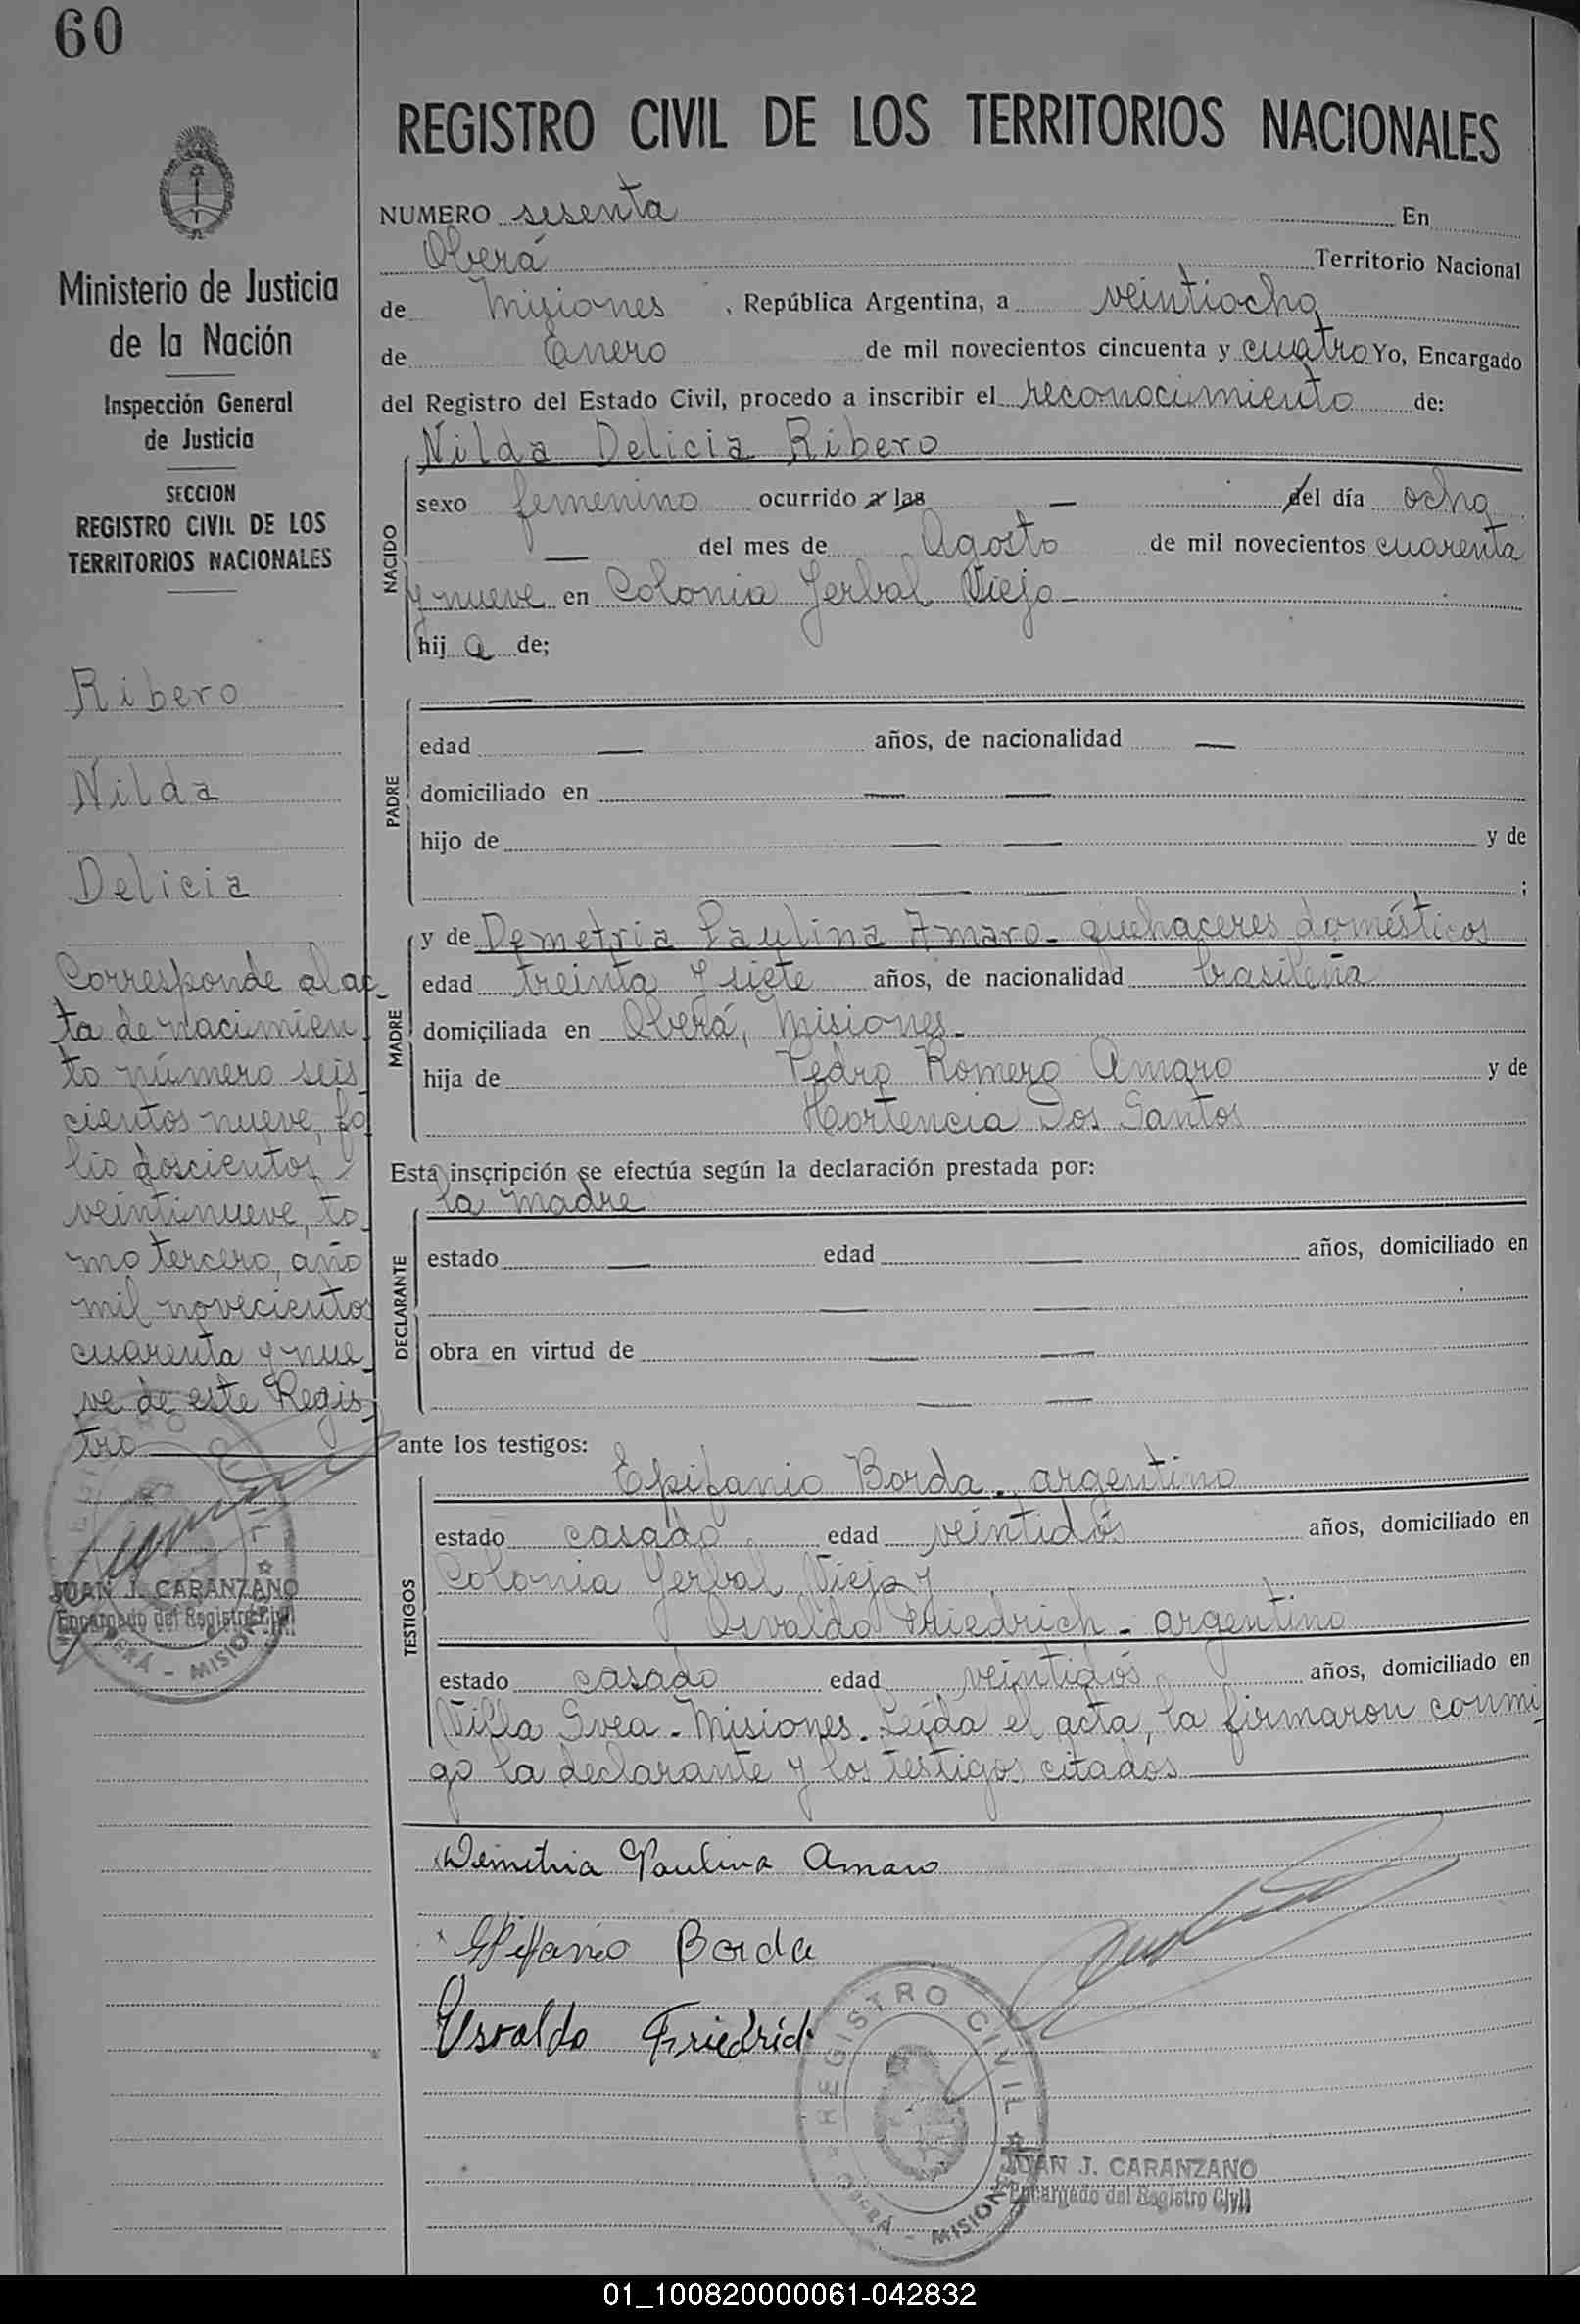 60
Ministerio de Justicia
de la Nación
Inspección General
de Justicia
SECCION
REGISTRO CIVIL DE LOS
TERRITORIOS NACIONALES
Ribero
Nilda
Delicia
Corresponde al ac-
ta de nacimien
to número seis
cientos nueve, fo
lio doscientos
veintinueve, to-
mo tercero, año
mil novecientos
cuarenta y nue-
ve de este Regis-
tro
JUAN J. CARANZANO
Encargado del Registro Civil
REGISTRO CIVIL DE LOS TERRITORIOS NACIONALES
NUMERO sesenta En
Oberá Territorio Nacional
de Misiones, República Argentina, a veintiocho
de Enero de mil novecientos cincuenta y cuatro Yo, Encargado
del Registro del Estado Civil, procedo a inscribir el reconocimiento de:
Nilda Delicia Ribero
NACIDO
sexo femenino ocurrido a las — del día ocho
— del mes de Agosto de mil novecientos cuarenta
y nueve en Colonia Yerbal Viejo —
hij a de;
PADRE
—
edad — años, de nacionalidad —
domiciliado en — —
hijo de — — y de
— — ;
MADRE
y de Demetria Paulina Amaro - quehaceres domésticos
edad treinta y siete años, de nacionalidad brasileña
domiciliada en Oberá, Misiones.
hija de Pedro Romero Amaro y de
Hortencia Dos Santos
Esta inscripción se efectúa según la declaración prestada por:
la madre
DECLARANTE
estado — edad — años, domiciliado en
— —
obra en virtud de — —
— —
ante los testigos:
TESTIGOS
Epifanio Borda - argentino
estado casado edad veintidós años, domiciliado en
Colonia Yerbal Viejo y
Osvaldo Friedrich - argentino
estado casado edad veintidós años, domiciliado en
Villa Svea - Misiones. Leída el acta, la firmaron conmi
go la declarante y los testigos citados
Demetria Paulina Amaro
Epifanio Borda
Osvaldo Friedrich
REGISTRO CIVIL
OBERÁ - MISIONES
JUAN J. CARANZANO
Encargado del Registro Civil
01_100820000061-042832